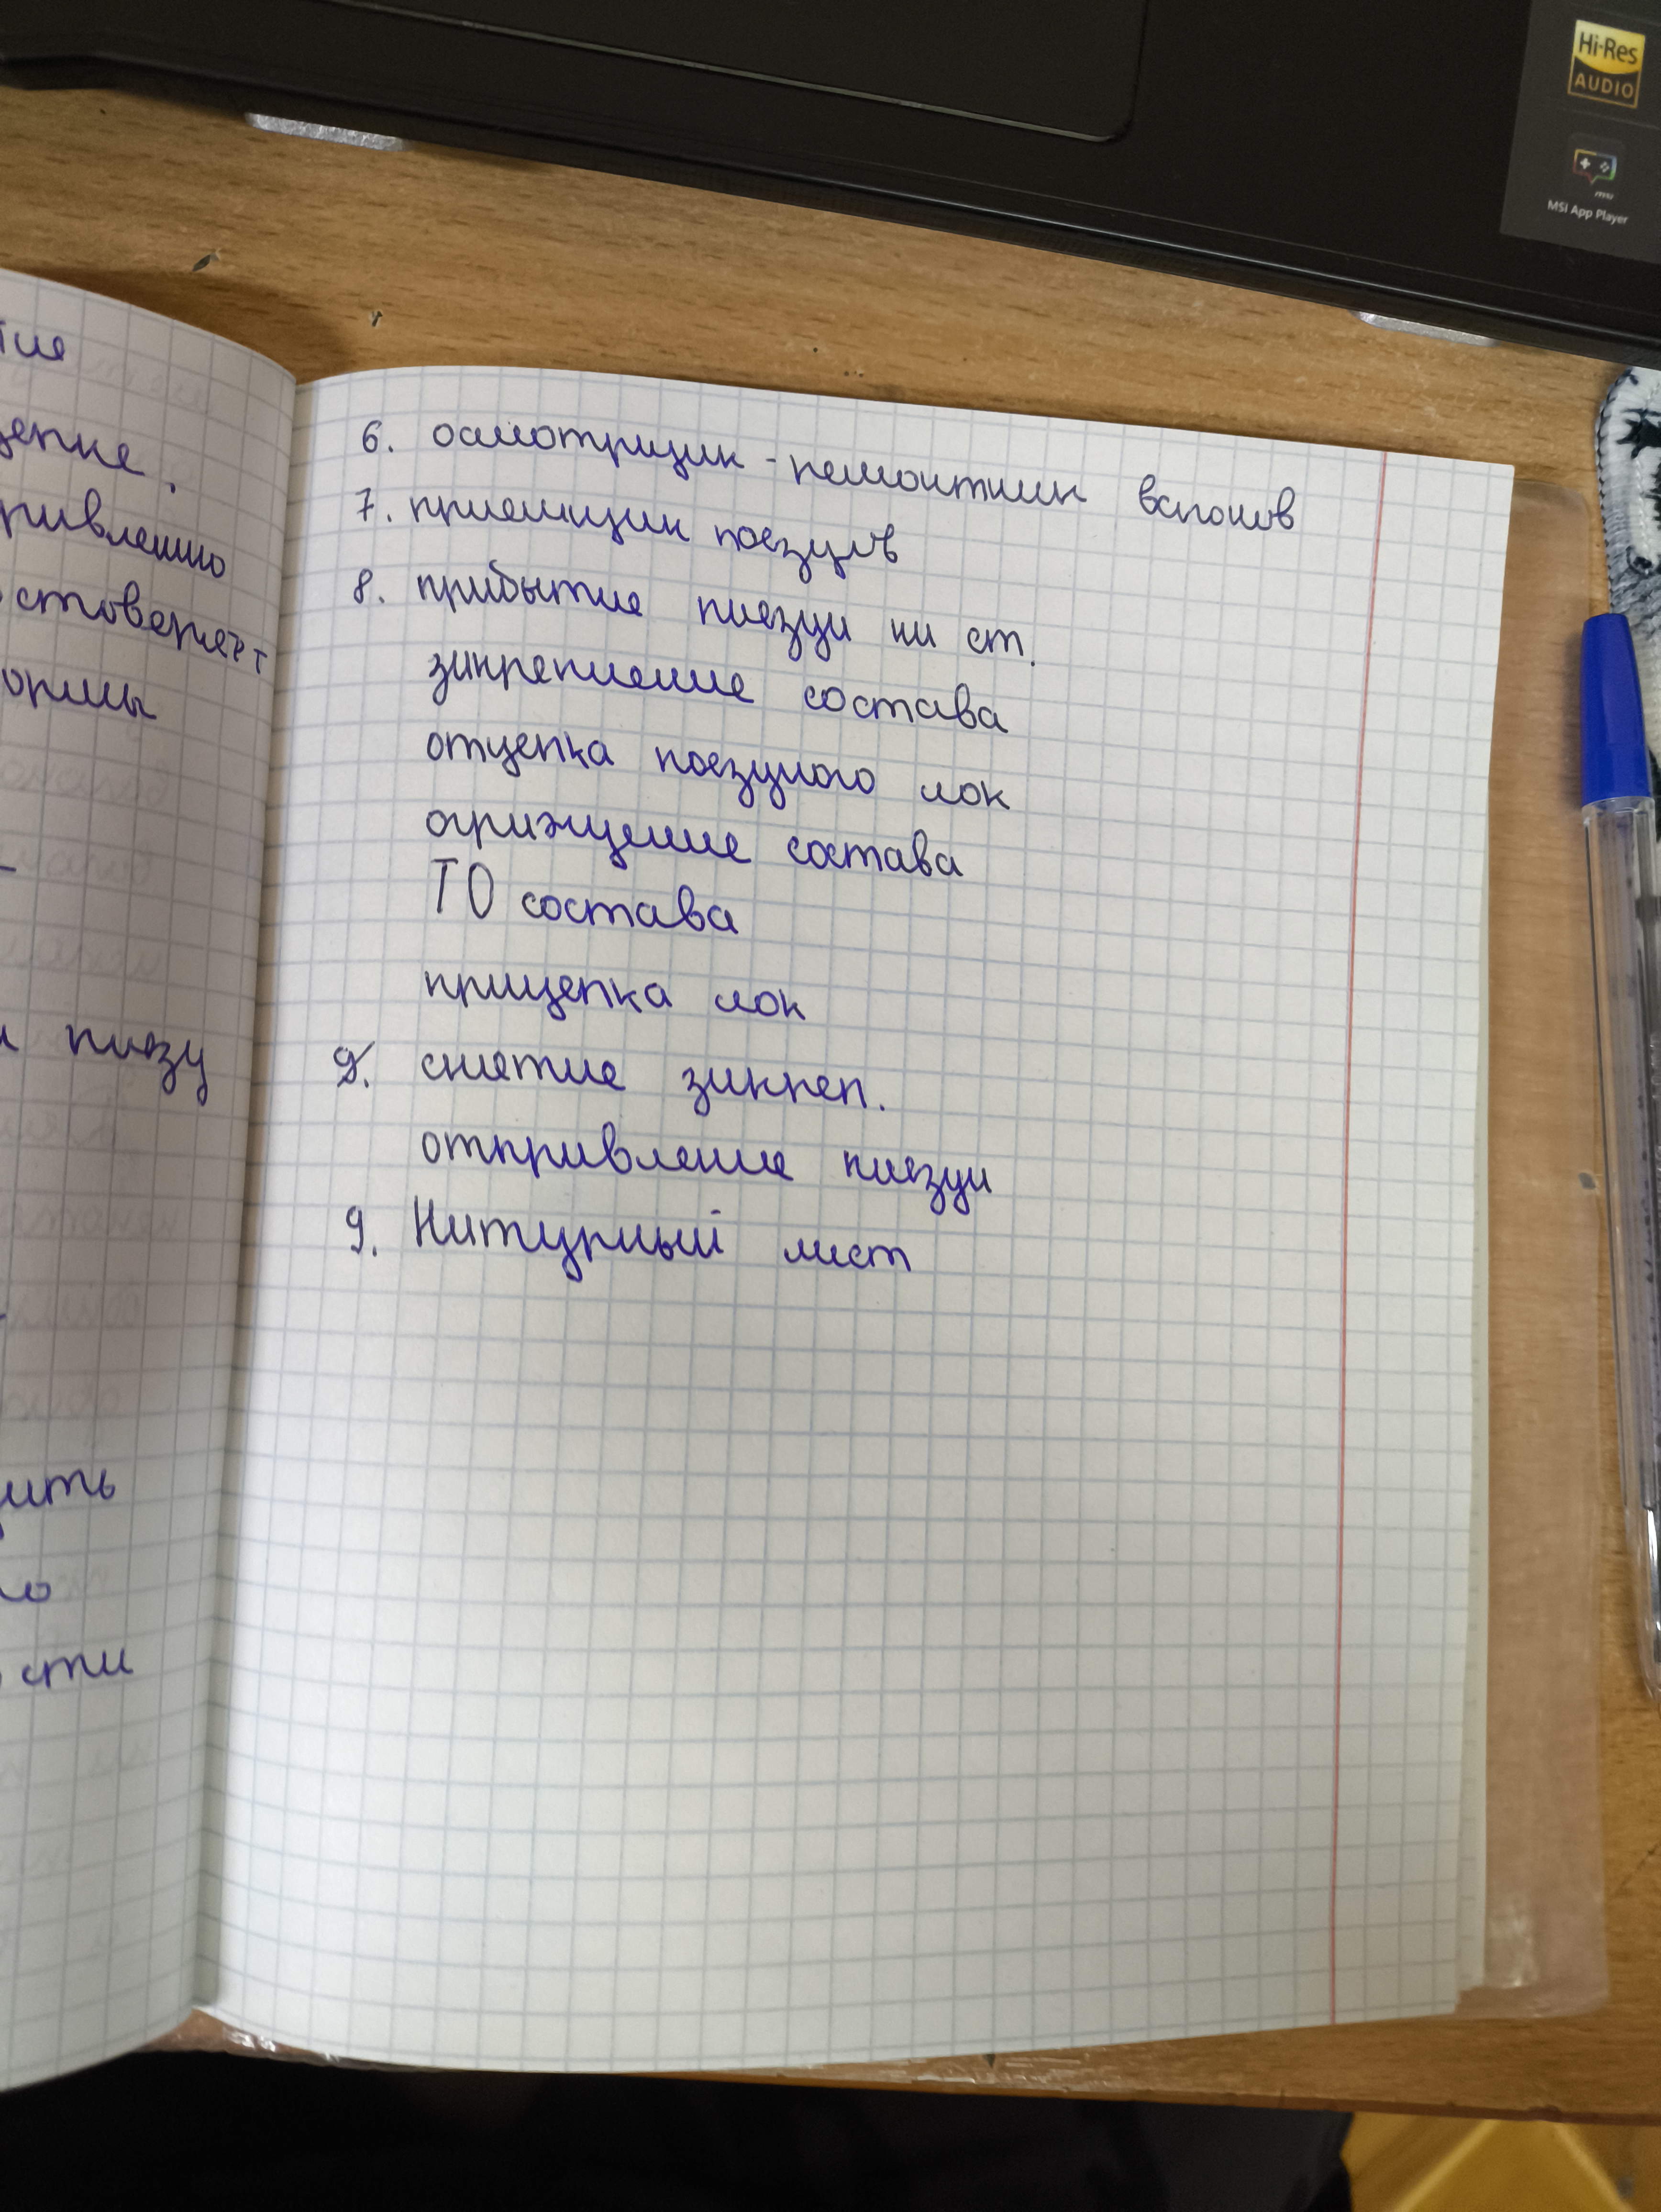 Hi-Res
AUDIO
msi
MSI App Player
тие
цепке.
равлению
стоверяет
ормы
поезу
ить
сти
6. осмотрщик-ремонтник вагонов
7. приемщик поездов
8. прибытие поезда на ст.
закрепление состава
отцепка поездного лок
ограждение состава
ТО состава
прицепка лок
9. снятие закреп.
отправление поезда
9. Натурный лист